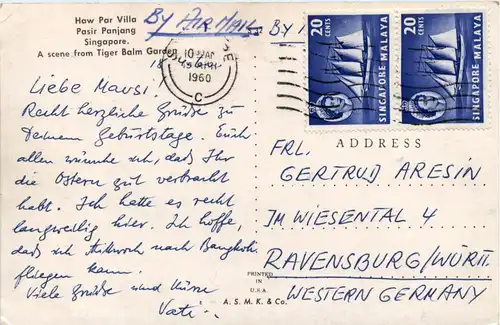 Haw Par Villa
Pasir Panjang
Singapore.
A scene from Tiger Balm Garden
BY AIR MAIL
1960
C
20
CENTS
SINGAPORE MALAYA
20
CENTS
SINGAPORE MALAYA
Liebe Mausi.
Recht herzliche Grüße zu
Deinem Geburtstage. Euch
allen wünsche ich, daß Ihr
die Ostern gut verbracht
habt. Ich hatte es recht
langweilig hier. Ich hoffe,
daß ich Mittwoch nach Bangkok
fliegen kann.
Viele Grüße und Küsse
Vati.
ADDRESS
FRL.
GERTRUD ARESIN
IM WIESENTAL 4
RAVENSBURG/WÜRTT.
WESTERN GERMANY
PRINTED
IN
U.S.A.
A. S. M. K. & Co.